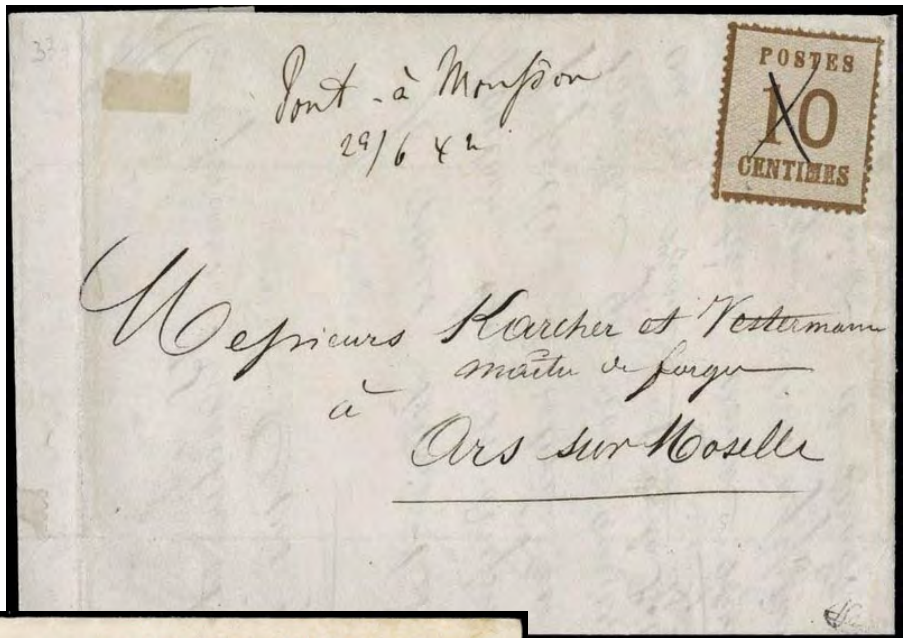 Pont-à-Mousson
29/6 4 h
POSTES
10
CENTIMES
Messieurs Karcher et Westermann
maître de forges
à
Ars sur Moselle